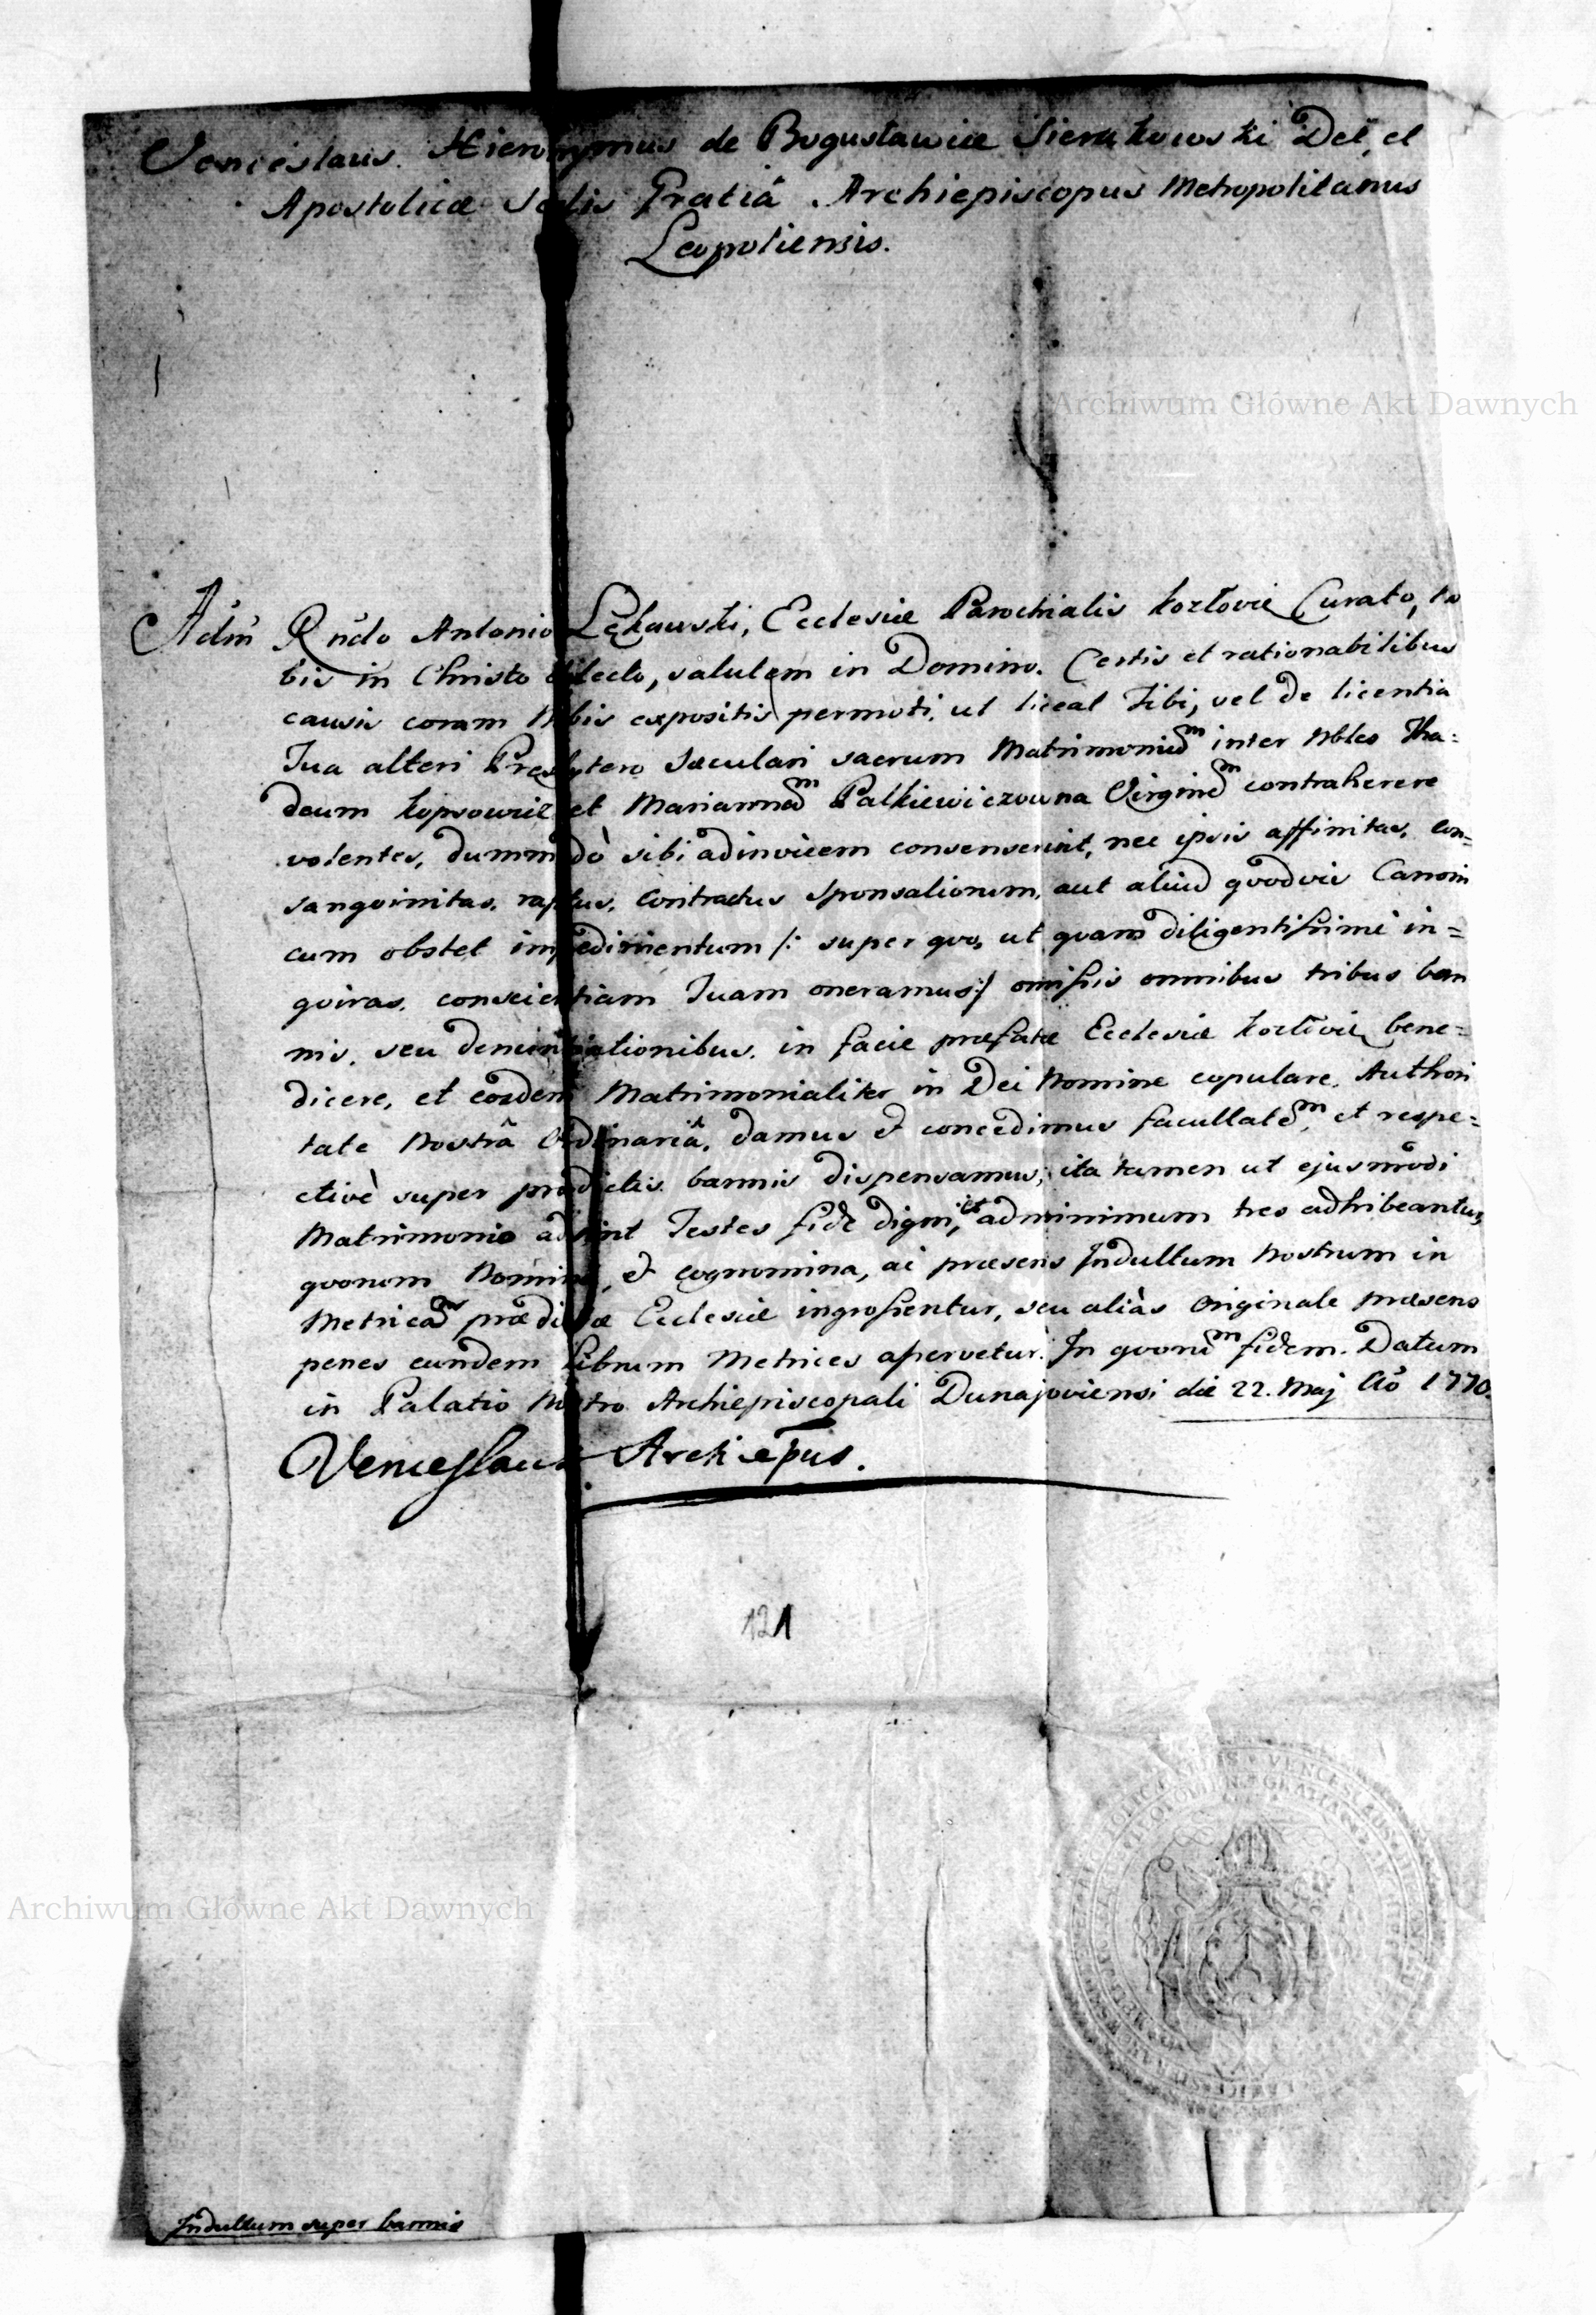 Venceslaus Hieronymus de Bogusławice Sierakowski Dei, et
Apostolicæ Sedis Gratiâ Archiepiscopus Metropolitanus
Leopoliensis.
Archiwum Główne Akt Dawnych
Adm̃ Rñdo Antonio Lękawski, Ecclesiæ Parochialis Kozłoviæ Curato, No
bis in Christo dilecto, salutem in Domino. Certis et rationabilibus
causis coram Nobis expositis permoti, ut liceat Tibi, vel de licentia
Tua alteri Presbytero Sæculari sacrum Matrimoniũm inter Nbles Tha=
deum et Mariannãm Palkiewiczowna Virginẽm contraherere
volentes, dummodò sibi adinvicem consenserint, nec ipsis affinitas, con=
sangvinitas, raptus, contractus Sponsaliorum, aut aliud quodvis Canoni
cum obstet impedimentum /: super quo, ut quam diligentissimè in=
quiras, conscientiam Tuam oneramus :/ omissis omnibus tribus ban
nis, seu denuntiationibus, in facie præfatæ Ecclesiæ Kozłoviæ bene=
dicere, et eosdem Matrimonialiter in Dei Nomine copulare, Authori
tate Nostrâ Ordinariâ, damus & concedimus facultatẽm, et respe=
ctivè super prædictis bannis dispensamus, ita tamen ut ejusmodi
Matrimonio adsint Testes fide digni, et adminimum tres adhibeantur,
quorum Nomina, & cognomina, ac præsens Indultum Nostrum in
Metricãm prædictæ Ecclesiæ ingrossentur, seu aliàs Originale præsens
penes eundem Librum Metrices asservetur. In quorũm fidem. Datum
in Palatio Nostro Archiepiscopali Dunajoviensi die 22. Maj Aõ 1770.
Venceslaus Archiepũs.
121
VENCESLAUS
GRATIA
Archiwum Główne Akt Dawnych
Indultum super bannis